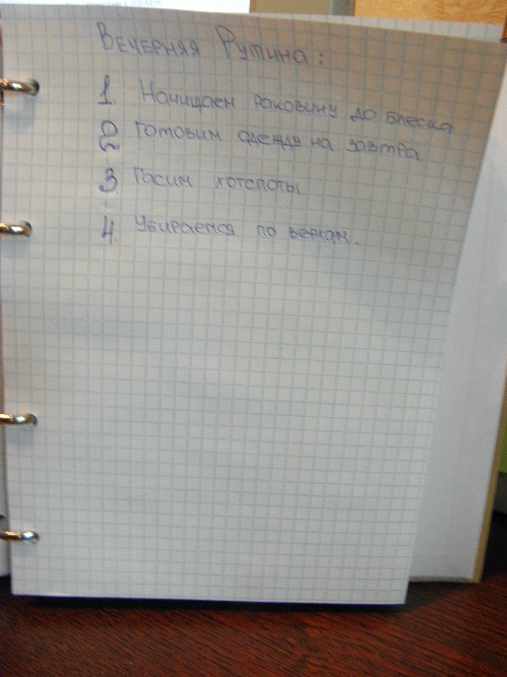 Вечерняя Рутина:
1. Начищаем раковину до блеска
2 Готовим одежду на завтра
3 Гасим хотспоты
4. Убираемся по верхам.